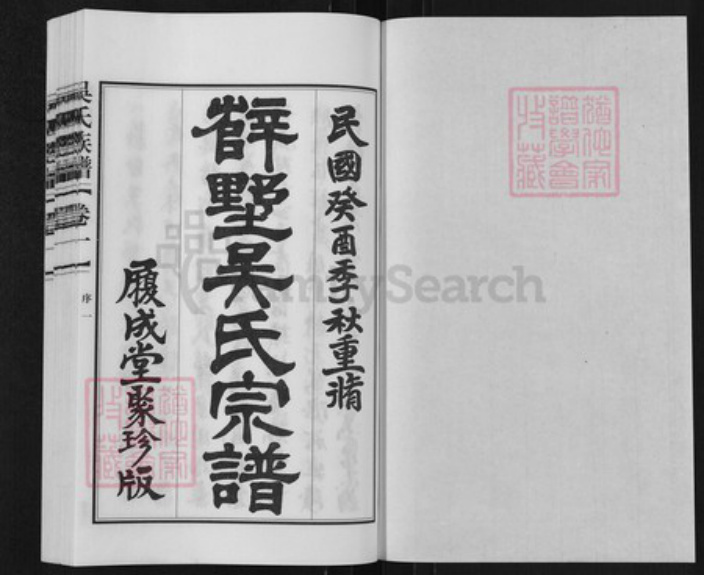 民國癸酉季秋重脩
薛墅吳氏宗譜
履成堂聚珍版
吳氏族譜 卷一
序一
FamilySearch
猶他家
譜學會
收藏